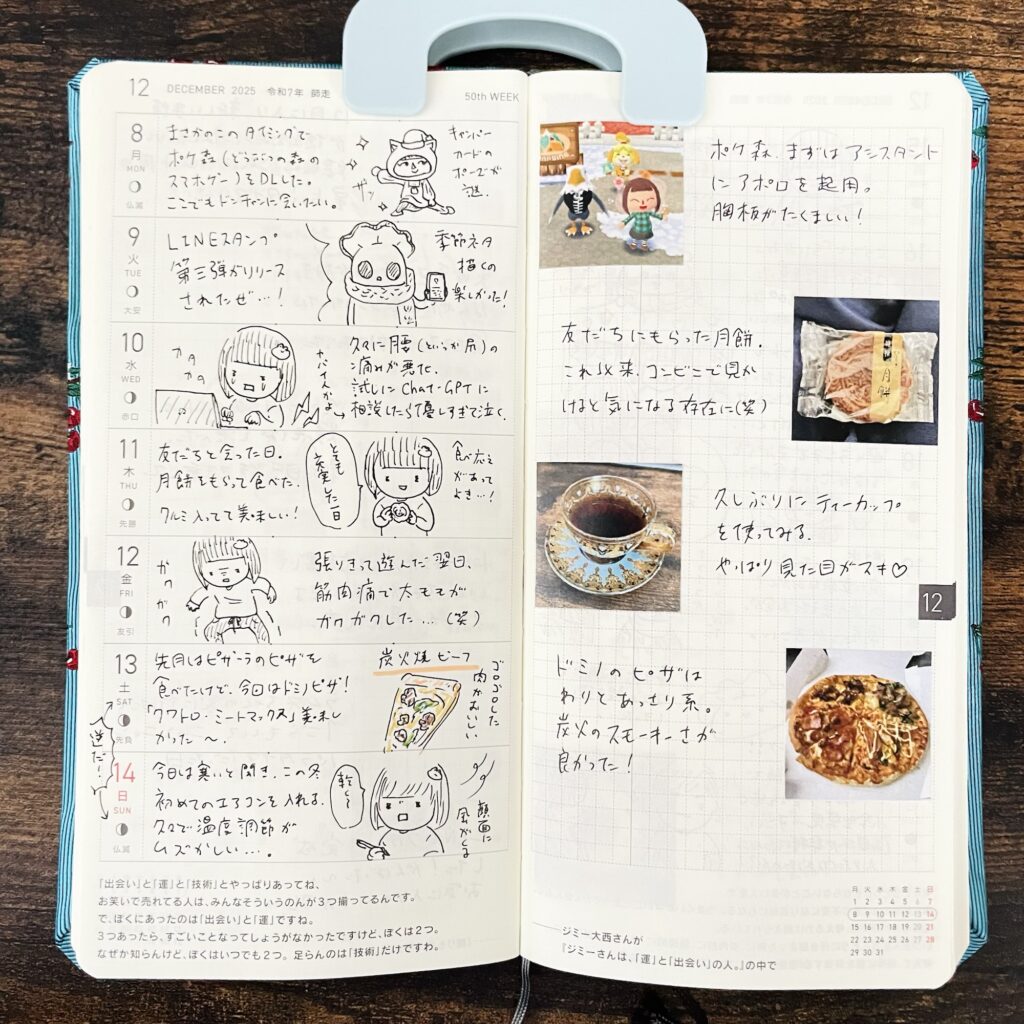 12 DECEMBER 2025 令和7年 師走 50th WEEK
8
月
MON
仏滅
まさかのこのタイミングで
ポケ森(どうぶつの森の
スマホゲー)をDLした。
ここでもドンチャンに会いたい。
キャンパー
カードの
ポーズが
謎。
9
火
TUE
大安
LINEスタンプ
第三弾がリリース
されたぜ…!
季節ネタ
描くの
楽しかった!
10
水
WED
赤口
カタ
カタ
久々に腰(というか尻)の
痛みが悪化。
試しにChat・GPTに
相談したら優しすぎて泣く。
11
木
THU
先勝
友だちと会った日。
月餅をもらって食べた。
クルミ入ってて美味しい!
とても
充実した一日
食べ応え
があって
よき…!
12
金
FRI
友引
ガク
ガク
張りきって遊んだ翌日、
筋肉痛で太モモが
ガクガクした…(笑)
13
土
SAT
先負
先月はピザーラのピザを
食べたけど、今回はドミノピザ!
「クワトロ・ミートマックス」美味し
かった〜。
炭火焼ビーフ
ゴロゴロした
肉がおいしい
逆だ!
14
日
SUN
仏滅
今日は寒いと聞き、この冬
初めてのエアコンを入れる。
久々で温度調節が
ムズかしい…。
乾く〜
顔面に
風がくる
「出会い」と「運」と「技術」とやっぱりあってね、
お笑いで売れてる人は、みんなそういうのんが3つ揃ってるんです。
で、ぼくにあったのは「出会い」と「運」ですね。
3つあったら、すごいことなってしょうがなかったですけど、ぼくは2つ。
なぜか知らんけど、ぼくはいつでも2つ。足らんのは「技術」だけですわ。
ポケ森、まずはアシスタント
にアポロを起用。
胸板がたくましい!
友だちにもらった月餅。
これ以来、コンビニで見か
けると気になる存在に(笑)
月餅
久しぶりにティーカップ
を使ってみる。
やっぱり見た目がスキ♡
12
ドミノのピザは
わりとあっさり系。
炭火のスモーキーさが
良かった!
月 火 水 木 金 土 日
1 2 3 4 5 6 7
8 9 10 11 12 13 14
15 16 17 18 19 20 21
22 23 24 25 26 27 28
29 30 31
──ジミー大西さんが
『ジミーさんは、「運」と「出会い」の人。』の中で